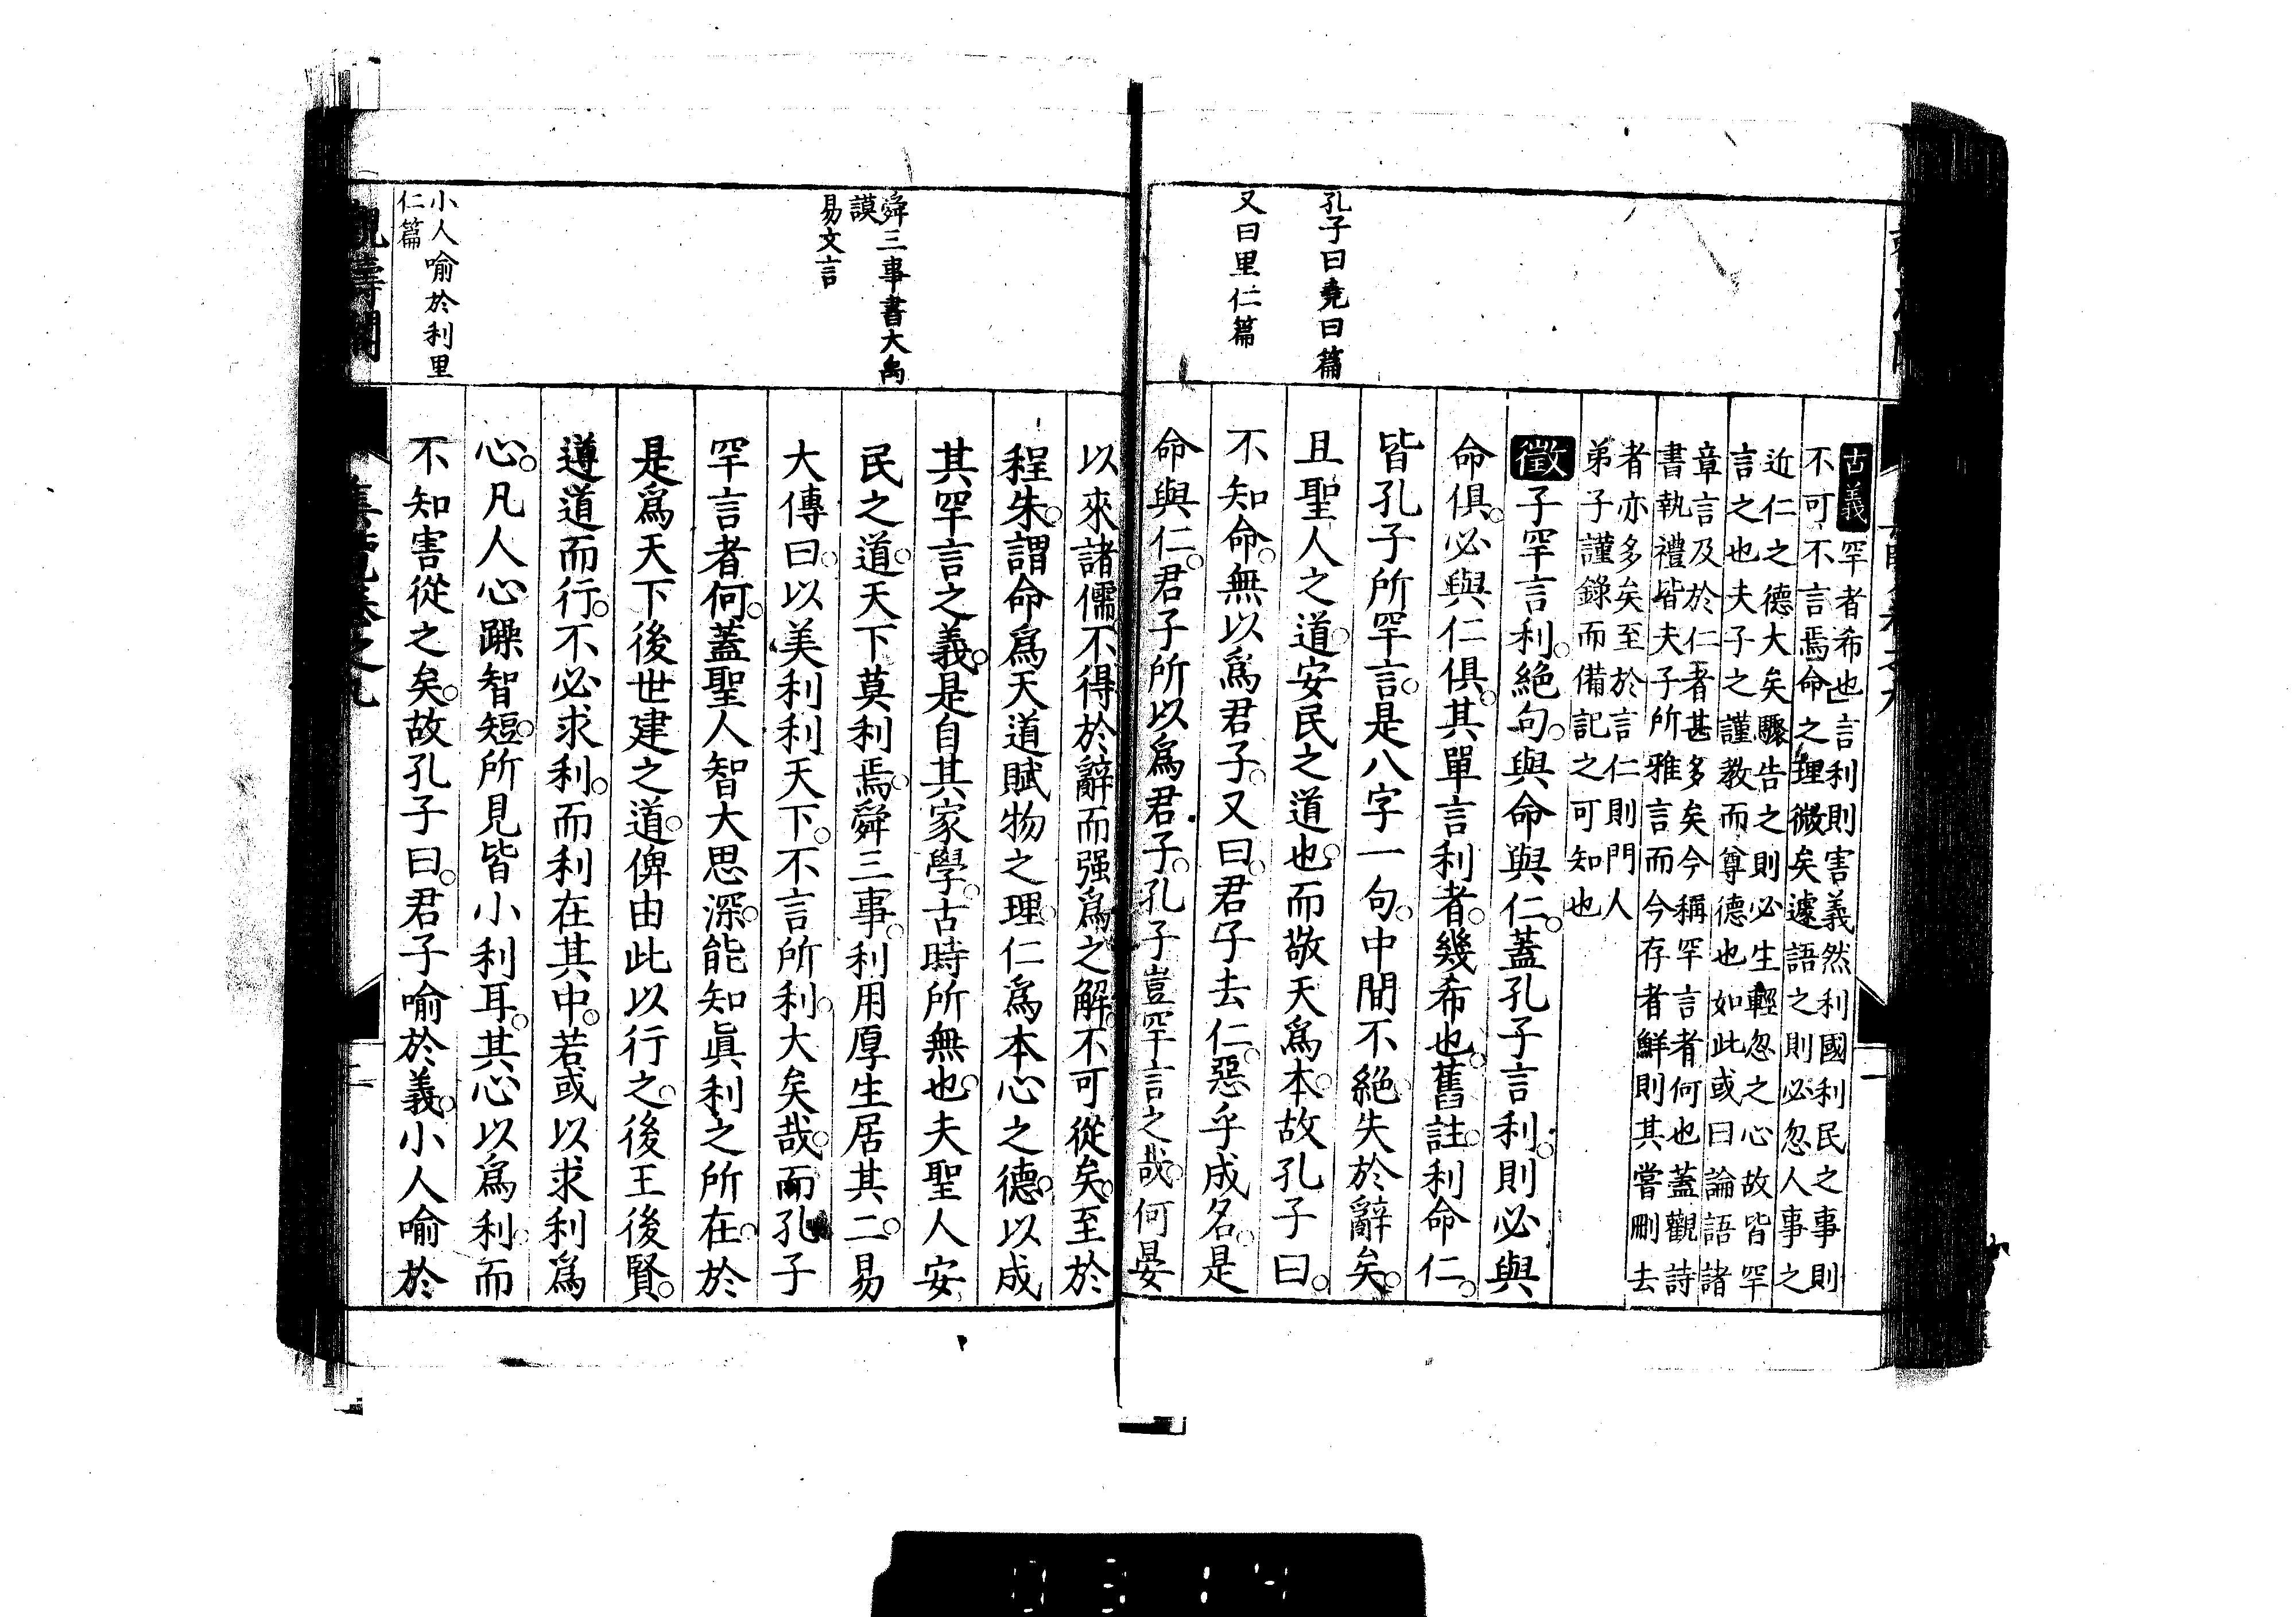 孔子曰堯曰篇
又曰里仁篇
古義罕者希也言利則害義然利國利民之事則
不可不言焉命之理微矣遽語之則必忽人事之
近仁之德大矣驟告之則必生輕忽之心故皆罕
言之也夫子之謹教而尊德也如此或曰論語諸
章言及於仁者甚多矣今稱罕言者何也蓋觀詩
書執禮皆夫子所雅言而今存者鮮則其嘗刪去
者亦多矣至於言仁則門人
弟子謹錄而備記之可知也
徵子罕言利。絕句。與命與仁。蓋孔子言利。則必與
命俱。必與仁俱。其單言利者。幾希也。舊註。利命仁。
皆孔子所罕言。是八字一句。中間不絕。失於辭矣。
且聖人之道。安民之道也。而敬天爲本。故孔子曰。
不知命。無以爲君子。又曰。君子去仁。惡乎成名。是
命與仁。君子所以爲君子。孔子豈罕言之哉。何晏
舜三事書大禹
謨
易文言
小人喻於利里
仁篇
以來諸儒。不得於辭而强爲之解。不可從矣。至於
程朱。謂命爲天道賦物之理。仁爲本心之德。以成
其罕言之義。是自其家學。古時所無也。夫聖人安
民之道。天下莫利焉。舜三事。利用厚生居其二。易
大傳曰。以美利利天下。不言所利。大矣哉。而孔子
罕言者何。蓋聖人智大思深。能知眞利之所在。於
是爲天下後世建之道。俾由此以行之。後王後賢。
遵道而行。不必求利。而利在其中。若或以求利爲
心。凡人心躁智短。所見皆小利耳。其心以爲利。而
不知害從之矣。故孔子曰。君子喻於義。小人喻於
0314